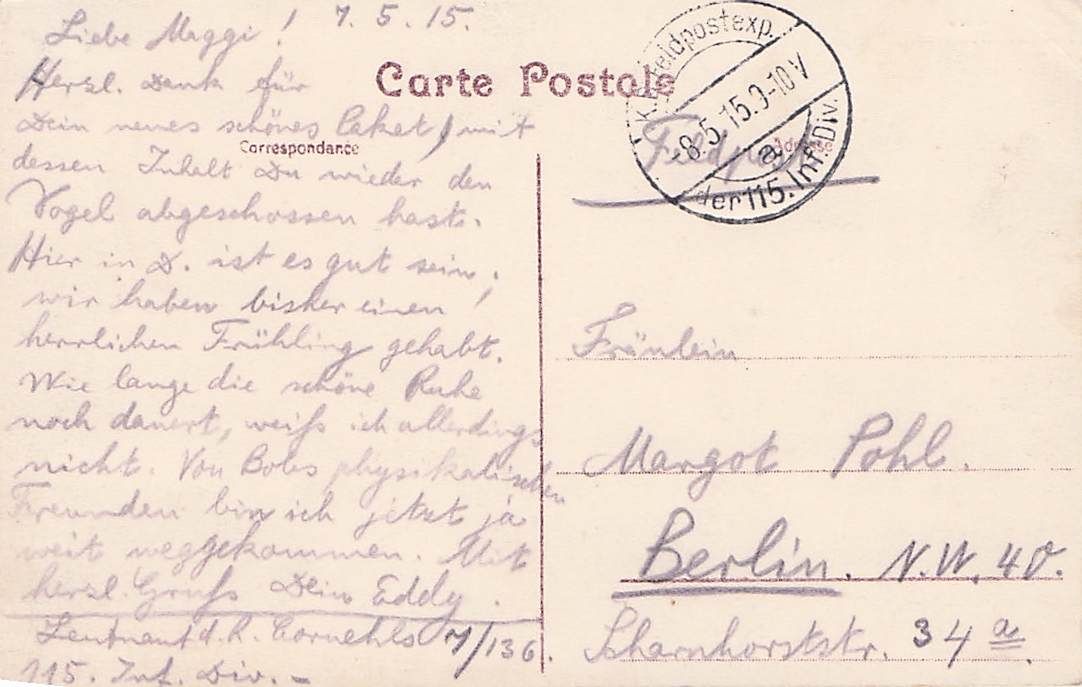 Liebe Maggi! 7.5.15.
Herzl. Dank für
Dein neues schönes Paket, mit
dessen Inhalt Du wieder den
Vogel abgeschossen hast.
Hier in D. ist es gut sein;
wir haben bisher einen
herrlichen Frühling gehabt.
Wie lange die schöne Ruhe
noch dauert, weiß ich allerdings
nicht. Von Bobs physikalischen
Freunden bin ich jetzt ja
weit weggekommen. Mit
herzl. Gruß Dein Eddy.
Leutnant d. R. Cornehls 7/136.
115. Inf. Div. -
Carte Postale
Correspondance
Adresse
K. Feldpostexp.
8.5.15.9-10V
a
der 115. Inf. Div.
Feldpost
Fräulein
Margot Pohl.
Berlin. N.W. 40.
Scharnhorststr. 34 a.